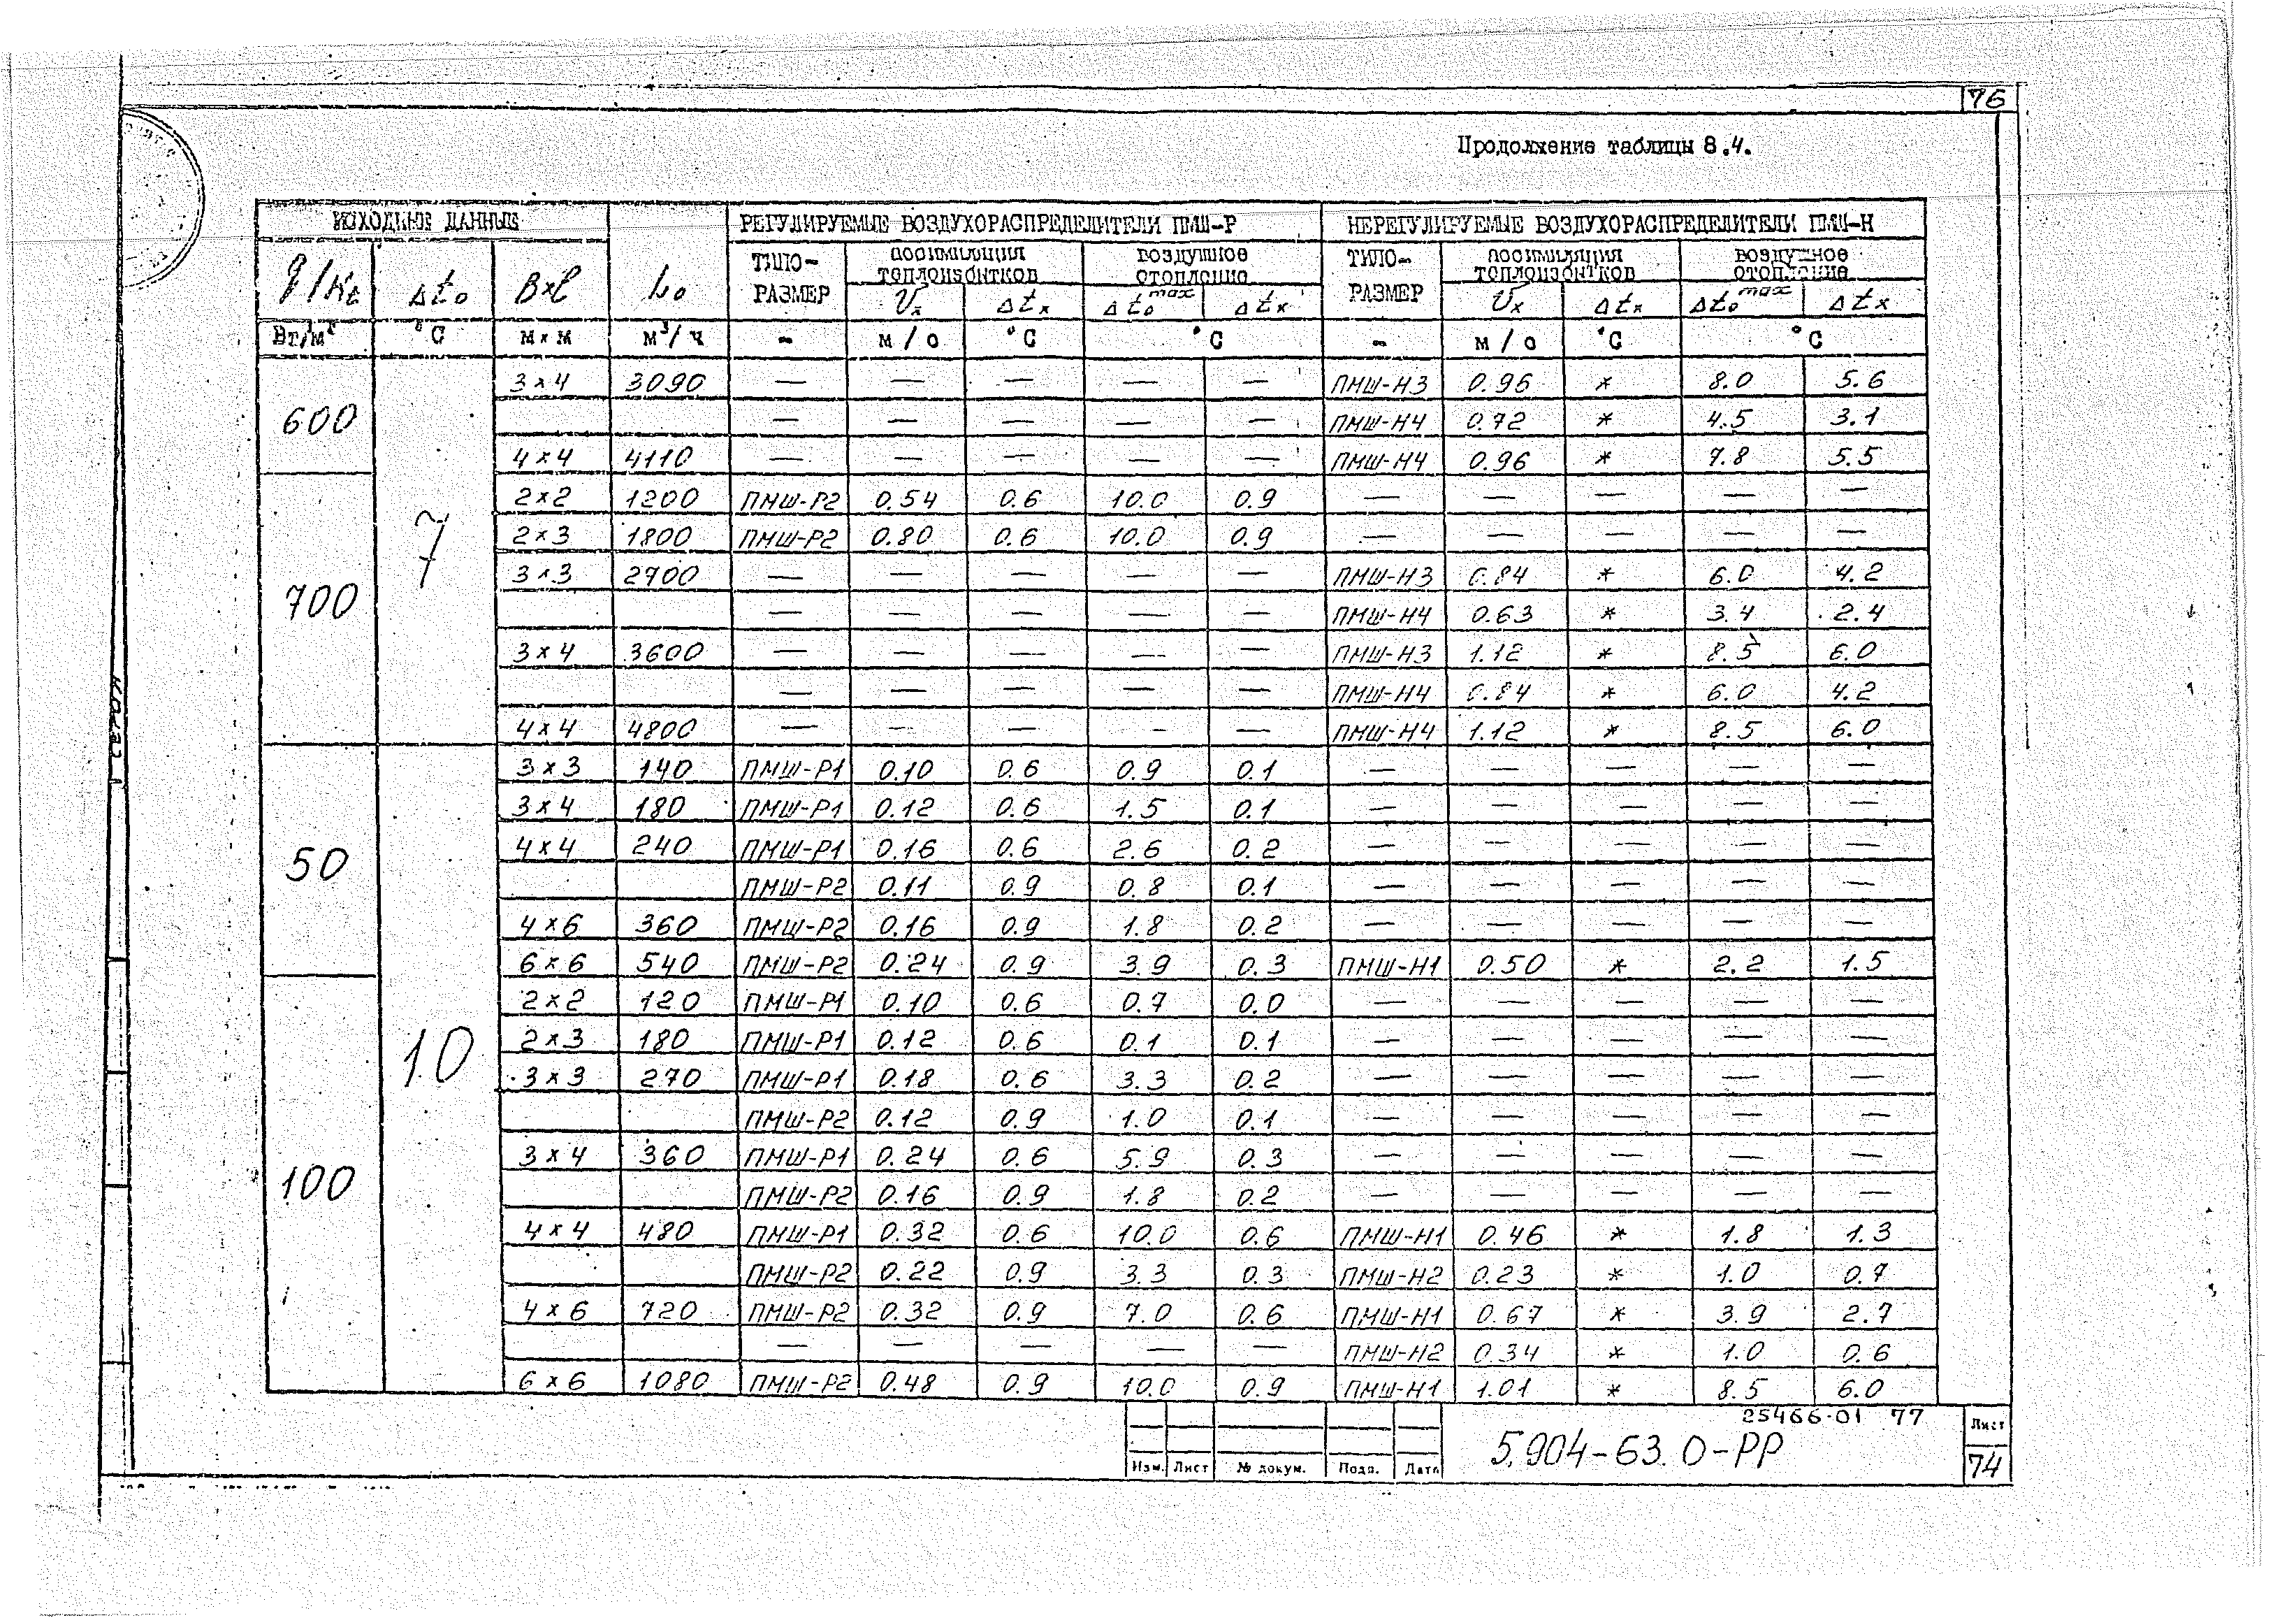 76
Продолжение таблицы 8.4.
ИСХОДНЫЕ ДАННЫЕ РЕГУЛИРУЕМЫЕ ВОЗДУХОРАСПРЕДЕЛИТЕЛИ ПМШ-Р НЕРЕГУЛИРУЕМЫЕ ВОЗДУХОРАСПРЕДЕЛИТЕЛИ ПМШ-Н
q/Kt Δto B×ℓ Lo ТИПО- ассимиляция воздушное ТИПО- ассимиляция воздушное
РАЗМЕР теплоизбытков отопление РАЗМЕР теплоизбытков отопление
Vx Δtx Δto max Δtx Vx Δtx Δto max Δtx
Вт/м² °C м×м м³/ч - м/с °C °C - м/с °C °C
600 7 3×4 3090 — — — — — ПМШ-Н3 0.96 * 8.0 5.6
— — — — — ПМШ-Н4 0.72 * 4.5 3.1
4×4 4110 — — — — — ПМШ-Н4 0.96 * 7.8 5.5
700 2×2 1200 ПМШ-Р2 0.54 0.6 10.0 0.9 — — — — —
2×3 1800 ПМШ-Р2 0.80 0.6 10.0 0.9 — — — — —
3×3 2700 — — — — — ПМШ-Н3 0.84 * 6.0 4.2
— — — — — ПМШ-Н4 0.63 * 3.4 2.4
3×4 3600 — — — — — ПМШ-Н3 1.12 * 8.5 6.0
— — — — — ПМШ-Н4 0.84 * 6.0 4.2
4×4 4800 — — — — — ПМШ-Н4 1.12 * 8.5 6.0
50 10 3×3 140 ПМШ-Р1 0.10 0.6 0.9 0.1 — — — — —
3×4 180 ПМШ-Р1 0.12 0.6 1.5 0.1 — — — — —
4×4 240 ПМШ-Р1 0.16 0.6 2.6 0.2 — — — — —
ПМШ-Р2 0.11 0.9 0.8 0.1 — — — — —
4×6 360 ПМШ-Р2 0.16 0.9 1.8 0.2 — — — — —
6×6 540 ПМШ-Р2 0.24 0.9 3.9 0.3 ПМШ-Н1 0.50 * 2.2 1.5
100 2×2 120 ПМШ-Р1 0.10 0.6 0.7 0.0 — — — — —
2×3 180 ПМШ-Р1 0.12 0.6 0.1 0.1 — — — — —
3×3 270 ПМШ-Р1 0.18 0.6 3.3 0.2 — — — — —
ПМШ-Р2 0.12 0.9 1.0 0.1 — — — — —
3×4 360 ПМШ-Р1 0.24 0.6 5.9 0.3 — — — — —
ПМШ-Р2 0.16 0.9 1.8 0.2 — — — — —
4×4 480 ПМШ-Р1 0.32 0.6 10.0 0.6 ПМШ-Н1 0.46 * 1.8 1.3
ПМШ-Р2 0.22 0.9 3.3 0.3 ПМШ-Н2 0.23 * 1.0 0.7
4×6 720 ПМШ-Р2 0.32 0.9 7.0 0.6 ПМШ-Н1 0.67 * 3.9 2.7
— — — — — ПМШ-Н2 0.34 * 1.0 0.6
6×6 1080 ПМШ-Р2 0.48 0.9 10.0 0.9 ПМШ-Н1 1.01 * 8.5 6.0
25466-01 77
5.904-63.0-РР
Лист
74
Изм. Лист № докум. Подп. Дата